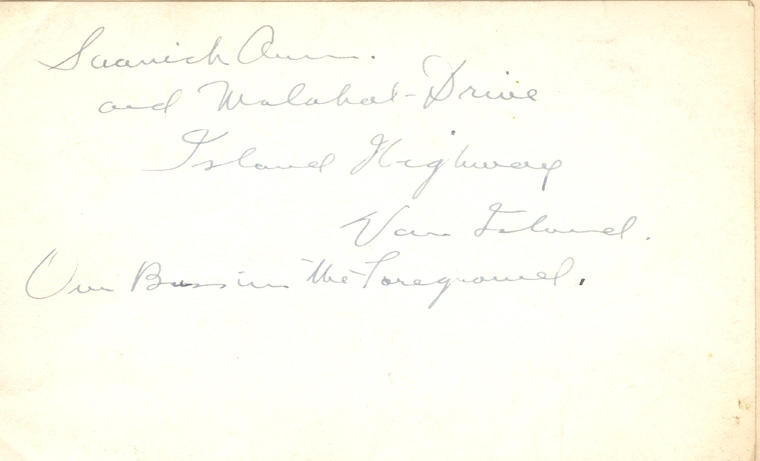 Saanich Arm.
and Malahat-Drive
Island Highway
Van Island.
Our Bus in the Foreground.